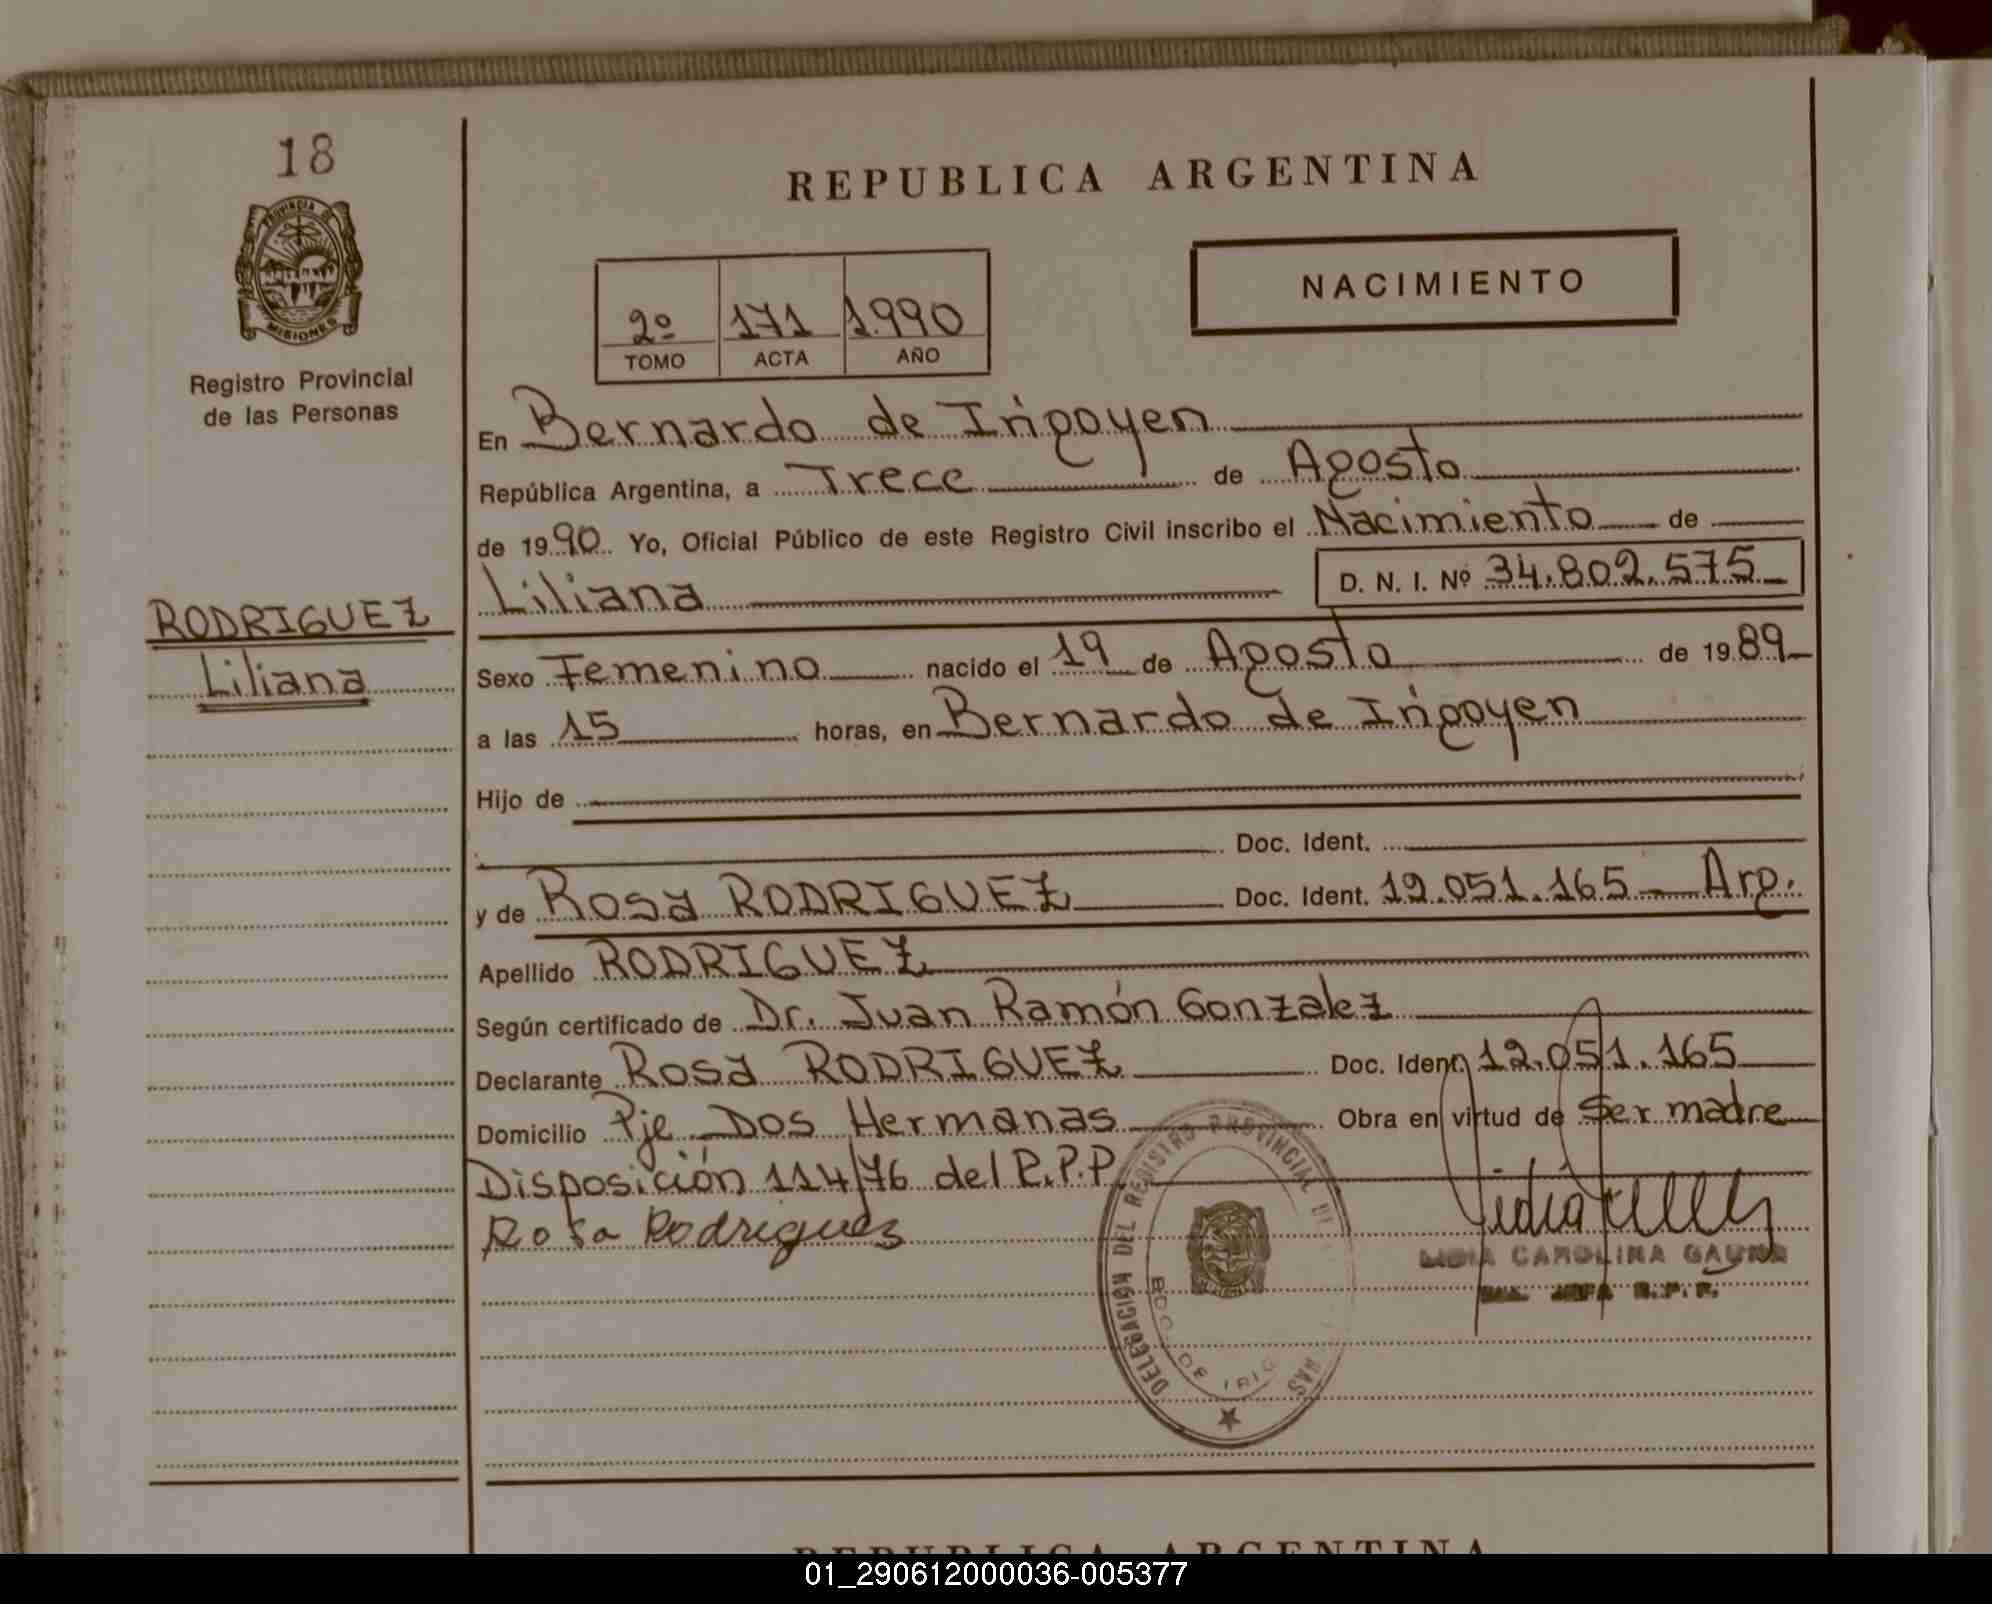 18
PROVINCIA DE
MISIONES
Registro Provincial
de las Personas
RODRIGUEZ
Liliana
REPUBLICA ARGENTINA
NACIMIENTO
2º 171 1.990
TOMO ACTA AÑO
En Bernardo de Irigoyen
República Argentina, a Trece de Agosto
de 1990 Yo, Oficial Público de este Registro Civil inscribo el Nacimiento de
Liliana D. N. I. Nº 34.802.575
Sexo Femenino nacido el 19 de Agosto de 1989
a las 15 horas, en Bernardo de Irigoyen
Hijo de
Doc. Ident.
y de Rosa RODRIGUEZ Doc. Ident. 12.051.165 Arg.
Apellido RODRIGUEZ
Según certificado de Dr. Juan Ramón Gonzalez
Declarante Rosa RODRIGUEZ Doc. Ident. 12.051.165
Domicilio Pje Dos Hermanas Obra en virtud de Ser madre
Disposición 114/76 del R.P.P.
Rosa Rodriguez
LIDIA CAROLINA GAUNA
JEFA R.P.P.
DELEGACIÓN DEL REGISTRO PROVINCIAL DE NAS
BDO. DE IRIG
REPUBLICA ARGENTINA
01_290612000036-005377